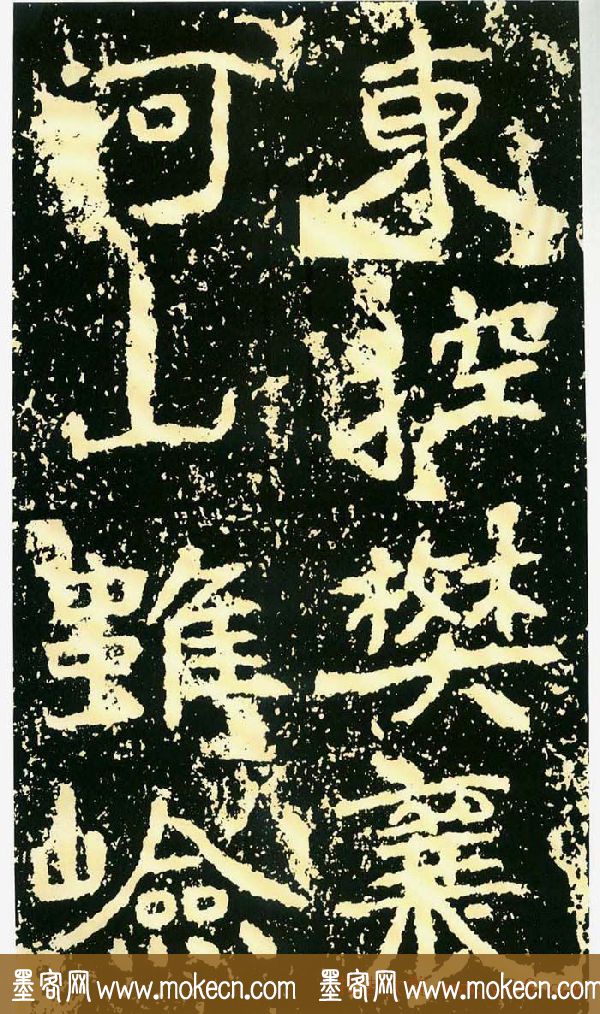 東控樊襄
河山雖嶮
墨客网 www.mokecn.com 墨客网 www.mokecn.com